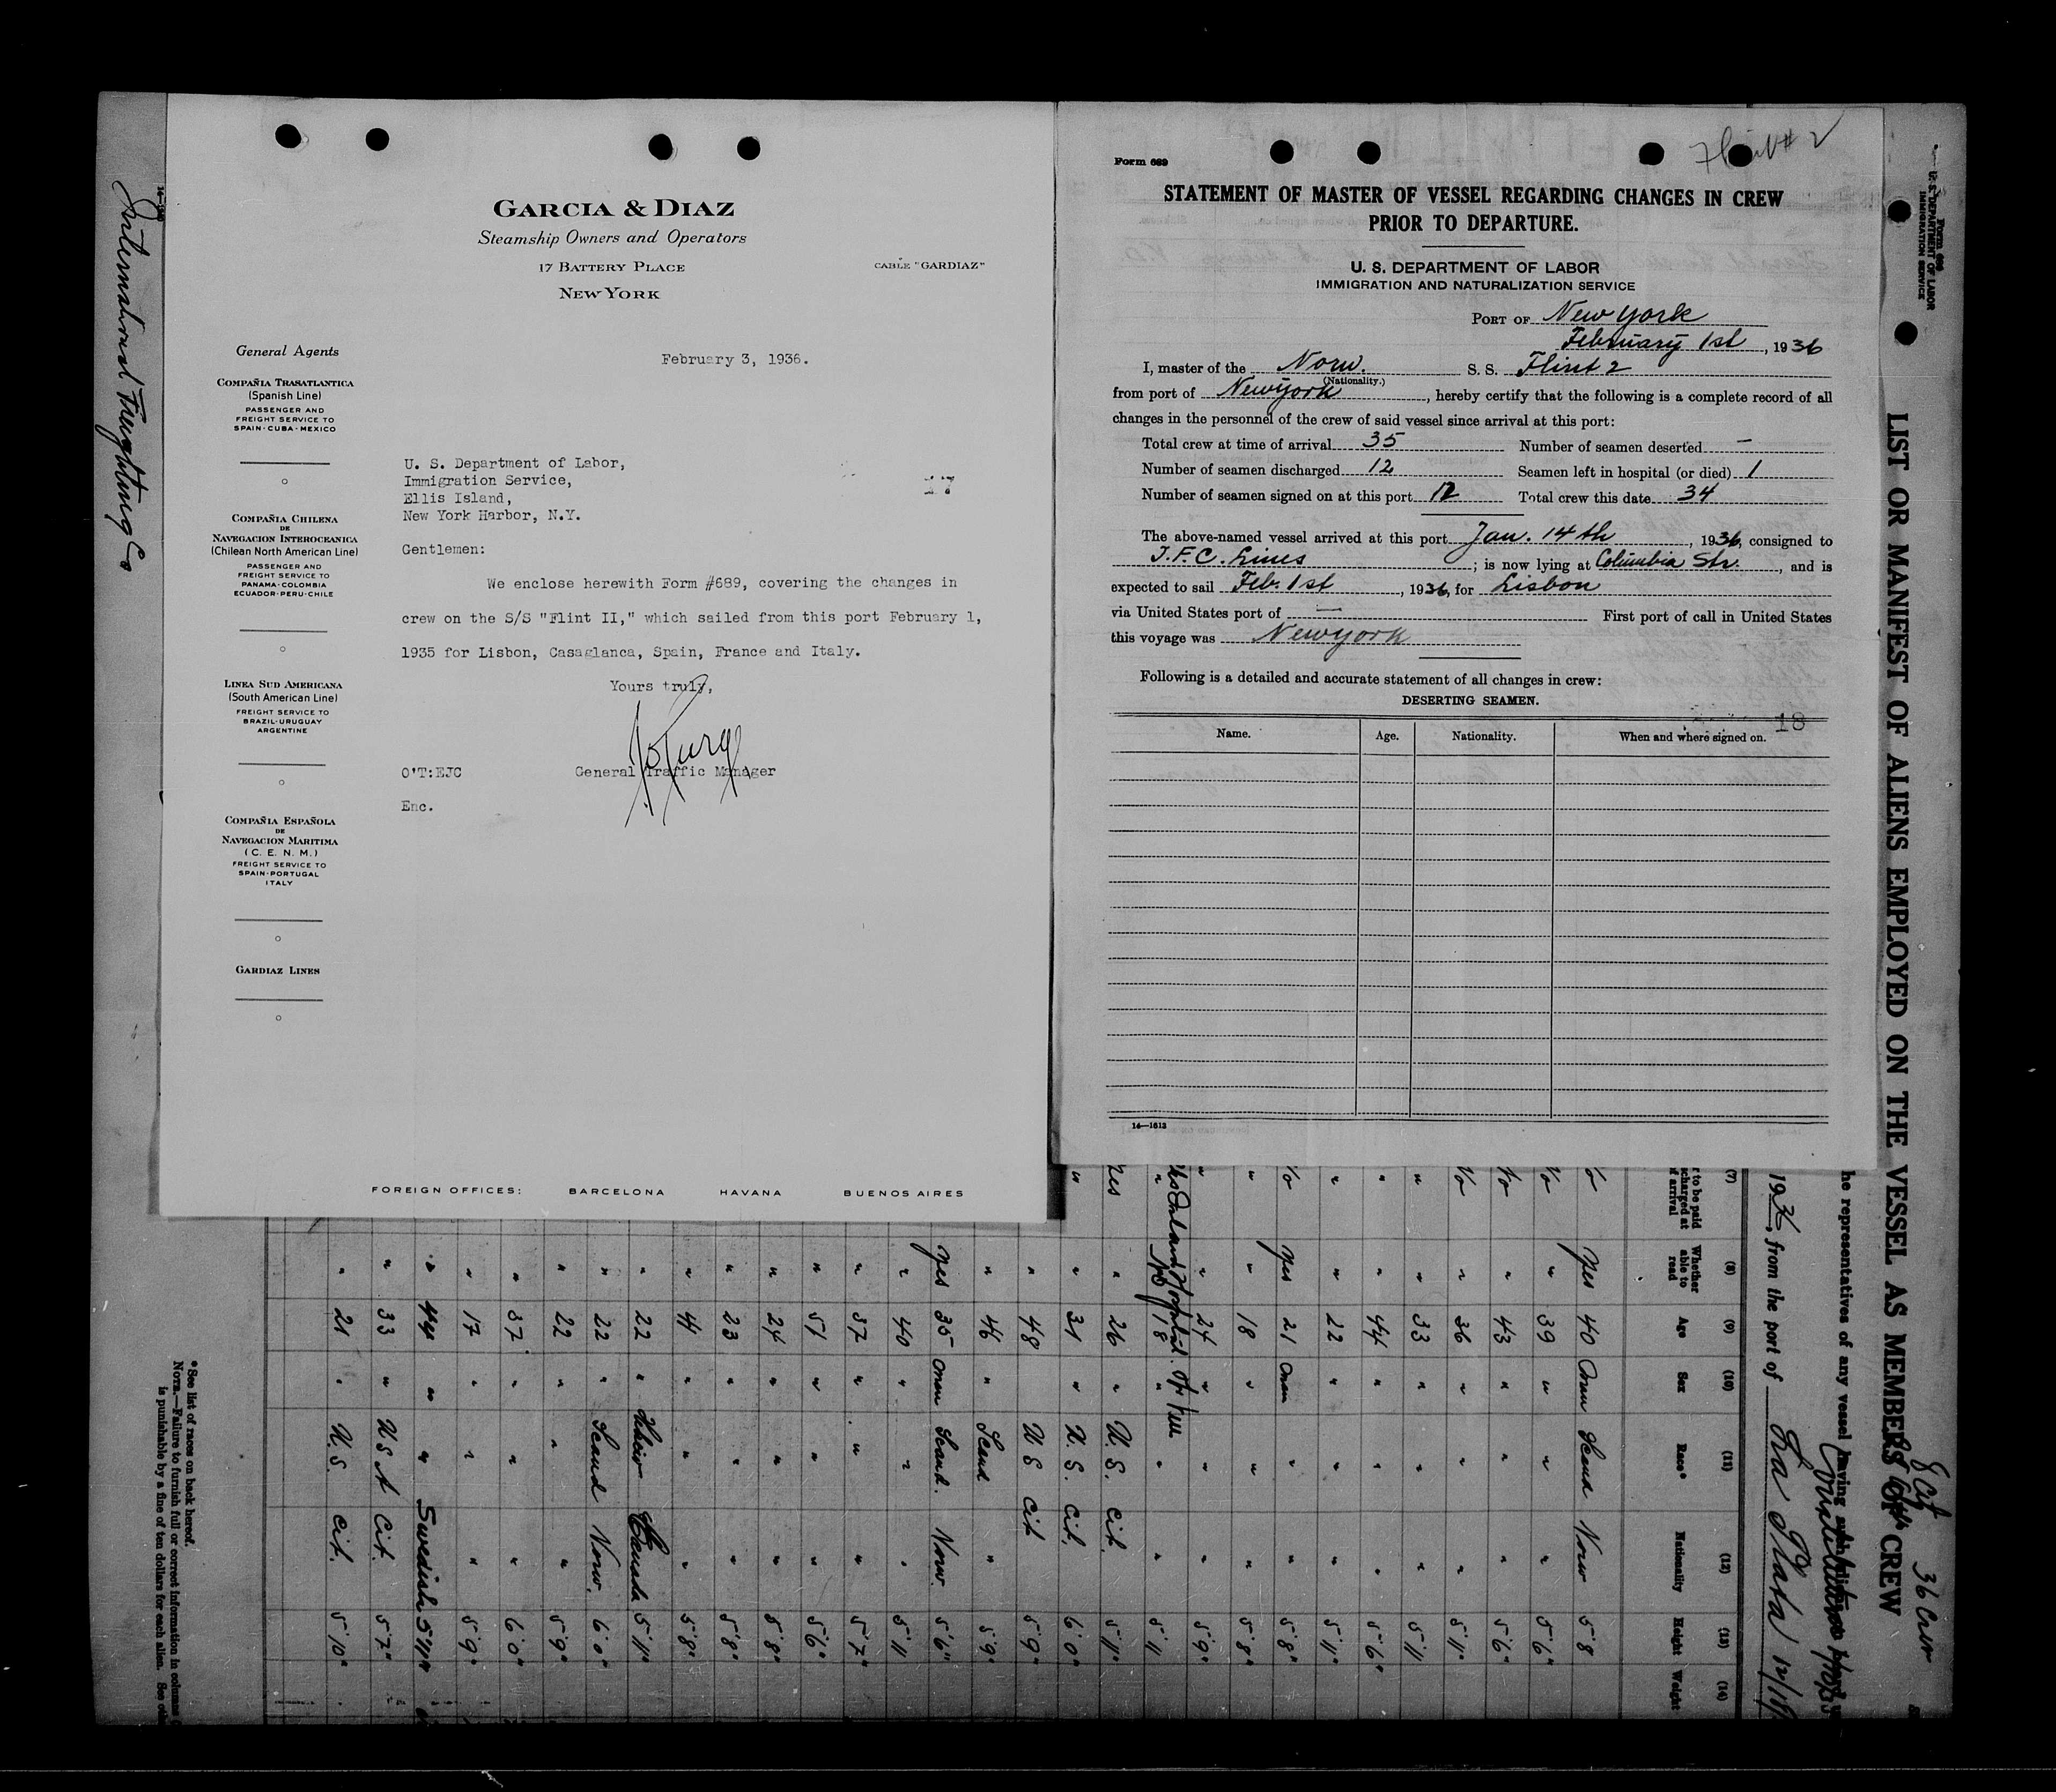 International
GARCIA & DIAZ
Steamship Owners and Operators
17 BATTERY PLACE
NEW YORK
CABLE "GARDIAZ"
General Agents
COMPAÑIA TRASATLANTICA
(Spanish Line)
PASSENGER AND
FREIGHT SERVICE TO
SPAIN-CUBA-MEXICO
COMPAÑIA CHILENA
DE
NAVEGACION INTEROCEANICA
(Chilean North American Line)
PASSENGER AND
FREIGHT SERVICE TO
PANAMA-COLOMBIA
ECUADOR-PERU-CHILE
LINEA SUD AMERICANA
(South American Line)
FREIGHT SERVICE TO
BRAZIL-URUGUAY
ARGENTINE
COMPAÑIA ESPAÑOLA
DE
NAVEGACION MARITIMA
(C. E. N. M.)
FREIGHT SERVICE TO
SPAIN-PORTUGAL
ITALY
GARDIAZ LINES
February 3, 1936.
U. S. Department of Labor,
Immigration Service,
Ellis Island,
New York Harbor, N.Y.
17
Gentlemen:
We enclose herewith Form #689, covering the changes in
crew on the S/S "Flint II," which sailed from this port February 1,
1935 for Lisbon, Casaglanca, Spain, France and Italy.
Yours truly,
O'T:EJC General Traffic Manager
Enc.
FOREIGN OFFICES: BARCELONA HAVANA BUENOS AIRES
Form 689
Flint # 2
STATEMENT OF MASTER OF VESSEL REGARDING CHANGES IN CREW
PRIOR TO DEPARTURE.
U. S. DEPARTMENT OF LABOR
IMMIGRATION AND NATURALIZATION SERVICE
PORT OF New York
February 1st, 1936
I, master of the Norw. S. S. Flint 2
(Nationality.)
from port of New York, hereby certify that the following is a complete record of all
changes in the personnel of the crew of said vessel since arrival at this port:
Total crew at time of arrival 35 Number of seamen deserted —
Number of seamen discharged 12 Seamen left in hospital (or died) 1
Number of seamen signed on at this port 12 Total crew this date 34
The above-named vessel arrived at this port Jan. 14th, 1936, consigned to
I.F.C. Lines; is now lying at Columbia Str., and is
expected to sail Febr. 1st, 1936, for Lisbon
via United States port of — First port of call in United States
this voyage was New York
Following is a detailed and accurate statement of all changes in crew:
DESERTING SEAMEN.
18
Name. Age. Nationality. When and where signed on.
14—1613
Form 689
U. S. DEPARTMENT OF LABOR
IMMIGRATION SERVICE
LIST OR MANIFEST OF ALIENS EMPLOYED ON THE VESSEL AS MEMBERS OF CREW
36 Crew
he representatives of any vessel having
1936, from the port of La Plata
(7) (8) (9) (10) (11) (12) (13) (14)
Whether able to read Age Sex Race* Nationality Height Weight
Yes 40 Scand Norw 5 8
" 39 " " " 5'6"
" 43 " " " 5'6"
" 36 " " " 5'11"
" 33 " " " 5'11
" 44 " " " 5'6"
" 22 " " " 5'11"
Yes 21 " " 5'8"
" 18 " " " 5'8"
" 24 " " " 5'9"
18 " " " 5'11
Yes " 26 " U.S. Cit. 5'11"
" " 31 " U.S. Cit. 6'0"
" 48 U S Cit 5'9"
" 46 " Scand " 5'9"
Yes 35 Scand. Norw. 5'6"
" 40 " " " 5'11
" 37 " " " 5'7"
" 51 " " " 5'6"
" 24 " " " 5'8"
" 23 " " " 5'8"
" 41 " " " 5'8"
" 22 " Canada 5'11"
" 22 " Scand Norw. 6'0"
" 22 " " " 5'9"
" 37 " " " 6'0"
" 17 " " " 5'9"
" 44 " " Swedish 5'11"
" 33 " U S A Cit. 5'7"
" 21 " U.S. Cit. 5'10"
*See list of races on back hereof.
NOTE.—Failure to furnish full or correct information in columns
is punishable by a fine of ten dollars for each alien. See